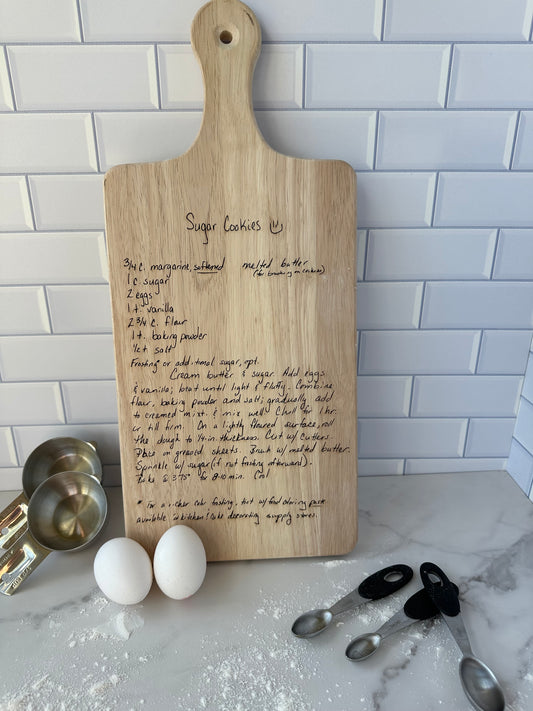 Sugar Cookies
3/4 c. margarine, softened melted butter
(for brushing on cookies)
1 c sugar
2 eggs
1 t. vanilla
2 3/4 c. flour
1 t. baking powder
1/2 t salt
Frosting or additional sugar, opt.
Cream butter & sugar. Add eggs
& vanilla; beat until light & fluffy. Combine
flour, baking powder and salt; gradually add
to creamed mixt. & mix well. Chill for 1 hr.
or till firm. On a lightly floured surface, roll
the dough to 1/4-in. thickness. Cut w/ cutters.
Place on greased sheets. Brush w/ melted butter.
Sprinkle w/ sugar (if not frosting afterward).
Bake @ 375° for 8-10 min. Cool
* For a richer color frosting, tint w/ food coloring paste
available in kitchen & cake decorating supply stores.